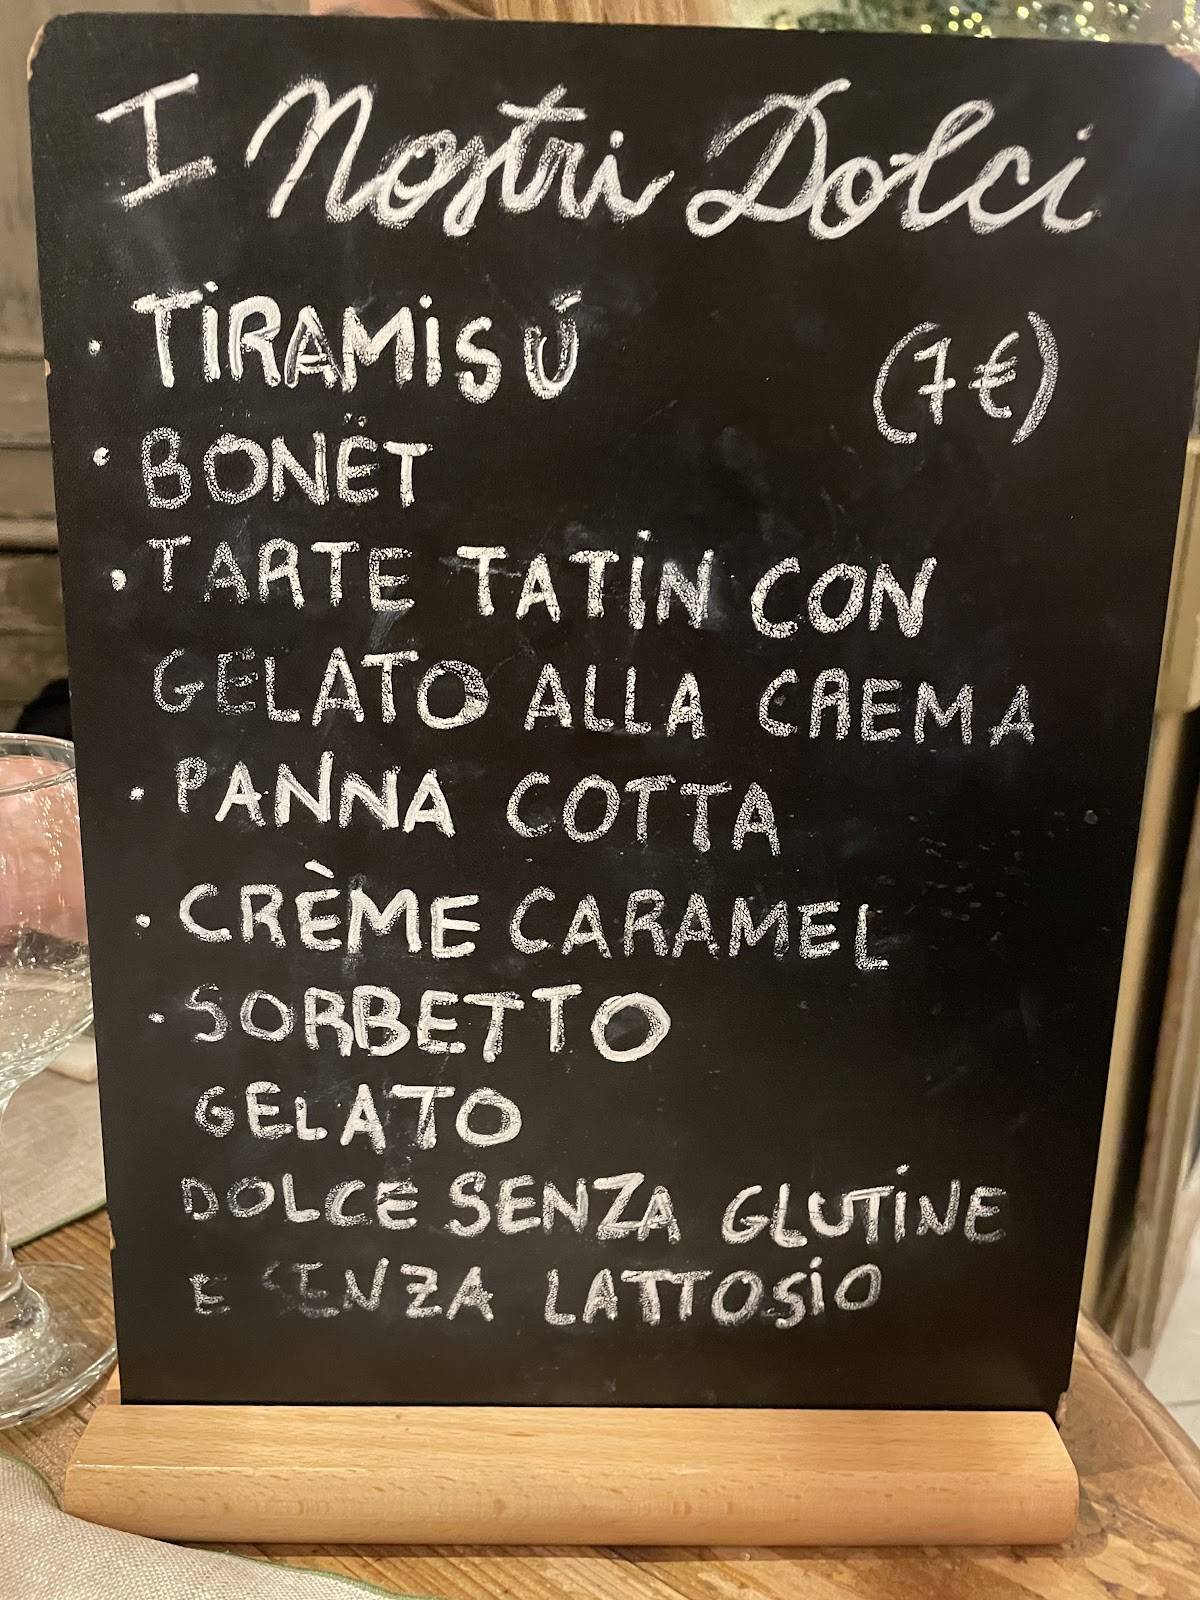 I Nostri Dolci
• TIRAMISÚ (7€)
• BONËT
• TARTE TATIN CON
GELATO ALLA CREMA
• PANNA COTTA
• CRÈME CARAMEL
• SORBETTO
GELATO
DOLCE SENZA GLUTINE
E SENZA LATTOSIO